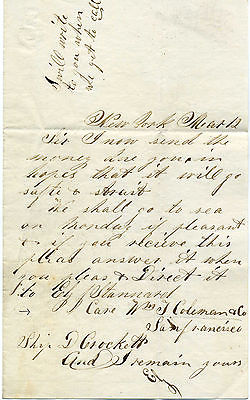 I will write
to you when
we get to cal
New York Mear 12
Sir I now send the
money due you in
hopes that it will go
safte & strait
We shall go to sea
on Monday if pleasant
& if you recieve this
pleas answer it when
you pleas & Direct it
to Ez Stannard
Care Wm T Coleman & Co
San francisco
Ship D Crockett
And I remain yours
Ez